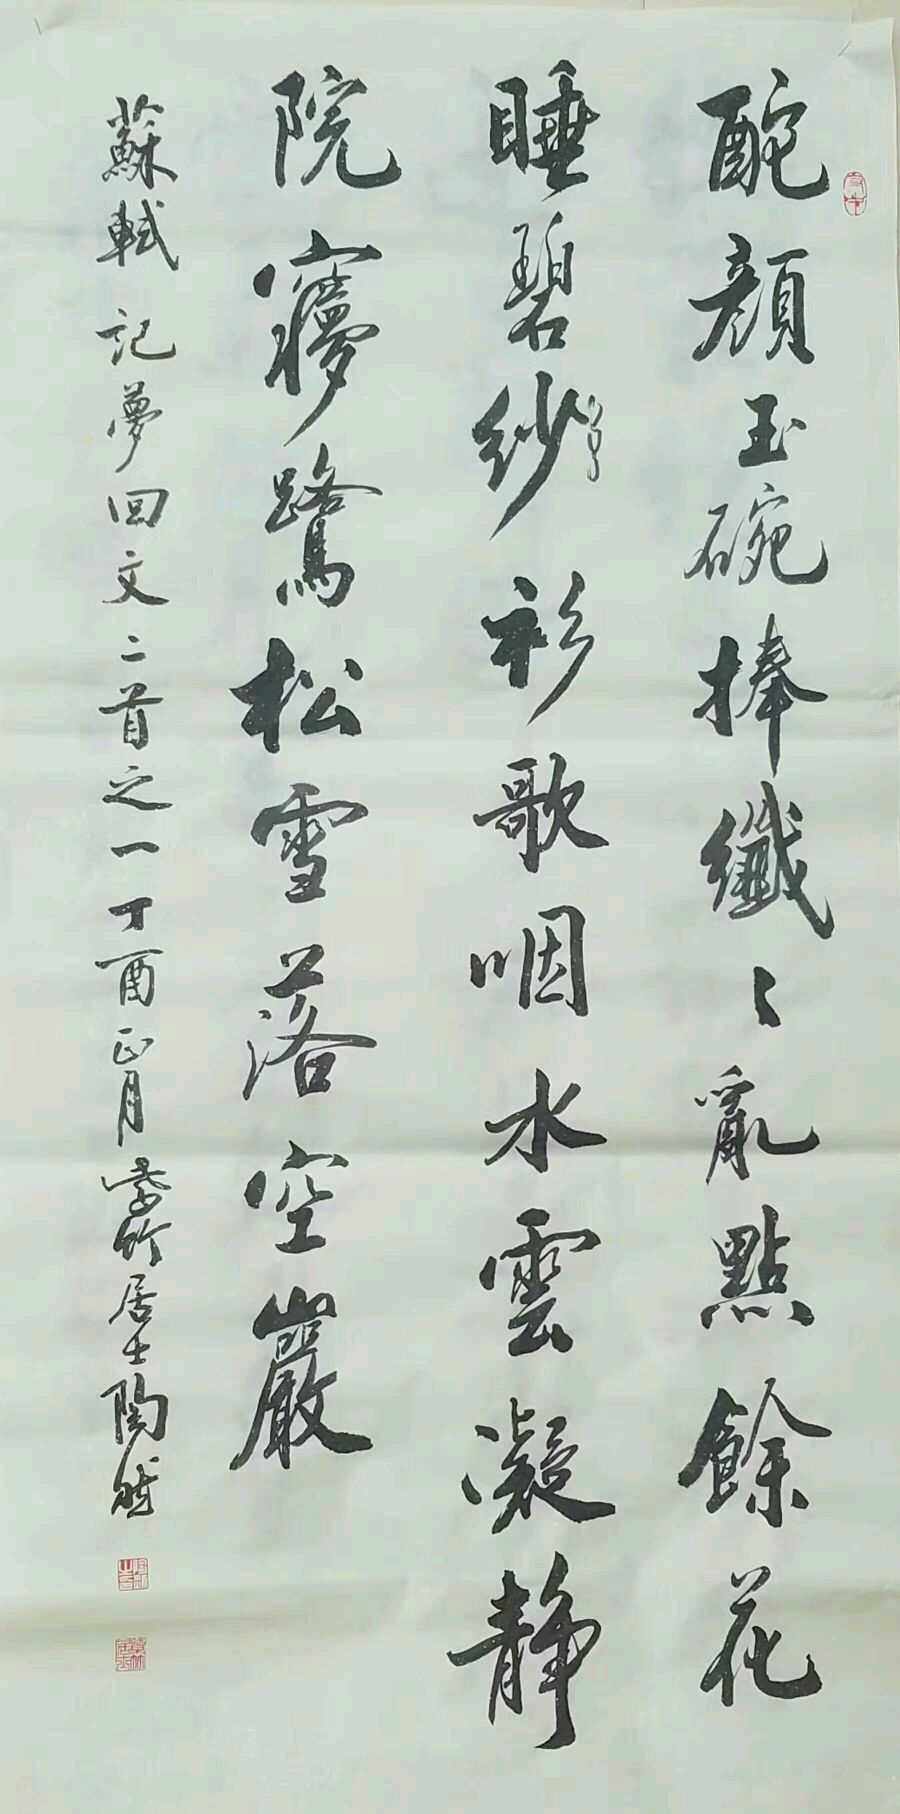 酡顏玉碗捧纖〻亂點餘花
睡碧紗衫歌咽水雲凝靜
院㝱驚松雪落空巖
蘇軾記夢回文二首之一丁酉正月紫竹居士陶然